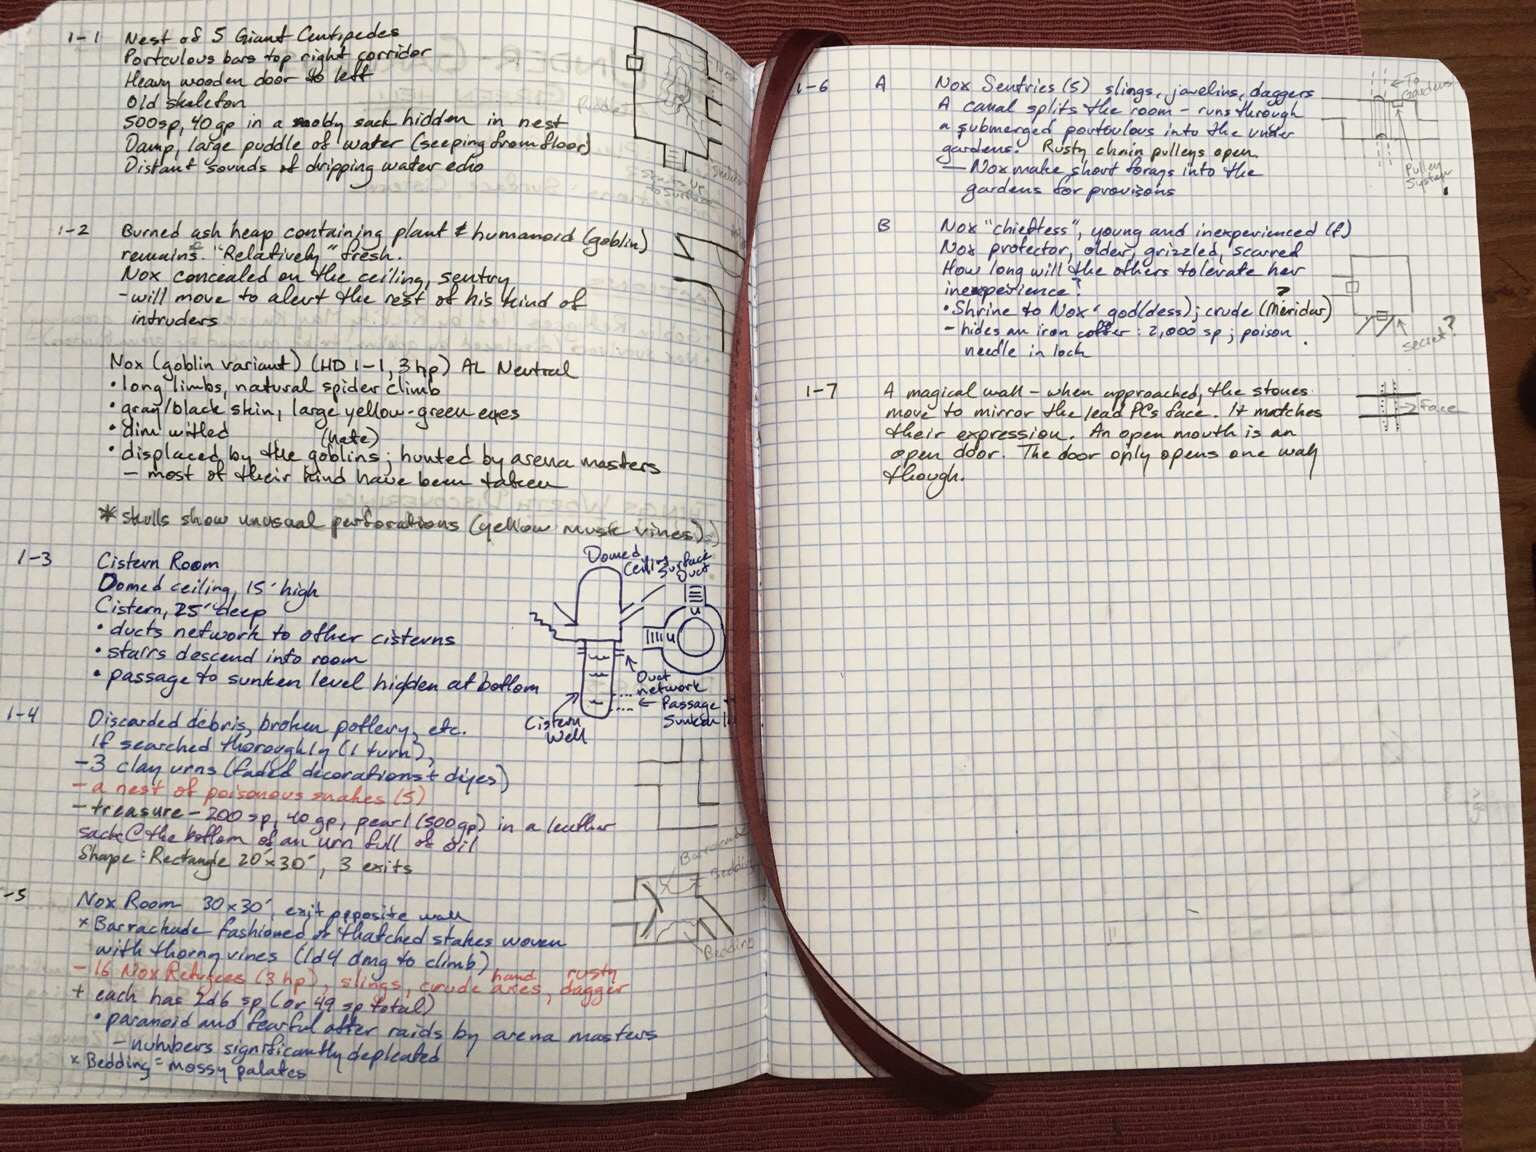 1-1 Nest of 5 Giant Centipedes
Portculous bars top right corridor
Heavy wooden door to left
Old skeleton
500sp, 40gp in a moldy sack hidden in nest
Damp, large puddle of water (seeping from floor)
Distant sounds of dripping water echo
Stairs up
to Surface
1-2 Burned ash heap containing plant & humanoid (goblin)
remains. "Relatively" fresh.
Nox concealed on the ceiling, sentry
- will move to alert the rest of his kind of
intruders
Nox (goblin variant) (HD 1-1, 3 hp) AL Neutral
• long limbs, natural spider climb
• gray/black skin, large yellow-green eyes
• dim witted
(hate)
• displaced by the goblins; hunted by arena masters
- most of their kind have been taken
* skulls show unusual perforations (yellow musk vines)
1-3 Cistern Room
Domed ceiling, 15' high
Cistern, 25' deep
• ducts network to other cisterns
• stairs descend into room
• passage to sunken level hidden at bottom
Domed
Ceiling
Surface
Duct
u
u
Duct
network
← Passage
Sunken
Cistern
Well
1-4 Discarded debris, broken pottery, etc.
If searched thoroughly (1 turn),
- 3 clay urns (faded decorations + dyes)
- a nest of poisonous snakes (5)
- treasure - 200 sp, 40 gp, pearl (500gp) in a leather
sack @ the bottom of an urn full of oil
Shape: Rectangle 20'x30', 3 exits
-5 Nox Room 30x30', exit opposite wall
x Barrachade fashioned of thatched stakes woven
with thorny vines (1d4 dmg to climb)
- 16 Nox Refugees (3 hp), slings, crude hand axes, rusty dagger
+ each has 2d6 sp (or 49 sp total)
• paranoid and fearful after raids by arena masters
- numbers significantly depleated
x Bedding = mossy palates
Barracade
Bedding
Bedding
1-6 A Nox Sentries (5) slings, javelins, daggers
A canal splits the room - runs through
a submerged portculous into the under
gardens. Rusty chain pulleys open.
— Nox make short forays into the
gardens for provisons
← To
Gardens
Pulley
System
B Nox "chieftess", young and inexperienced (f)
Nox protector, older, grizzled, scarred
How long will the others tolerate her
inexperience?
• Shrine to Nox' god(dess); crude (Meridar?)
- hides an iron coffer: 2,000 sp; poison
needle in lock
secret?
1-7 A magical wall - when approached, the stones
move to mirror the lead PCs face. It matches
their expression. An open mouth is an
open door. The door only opens one way
though.
→ Face